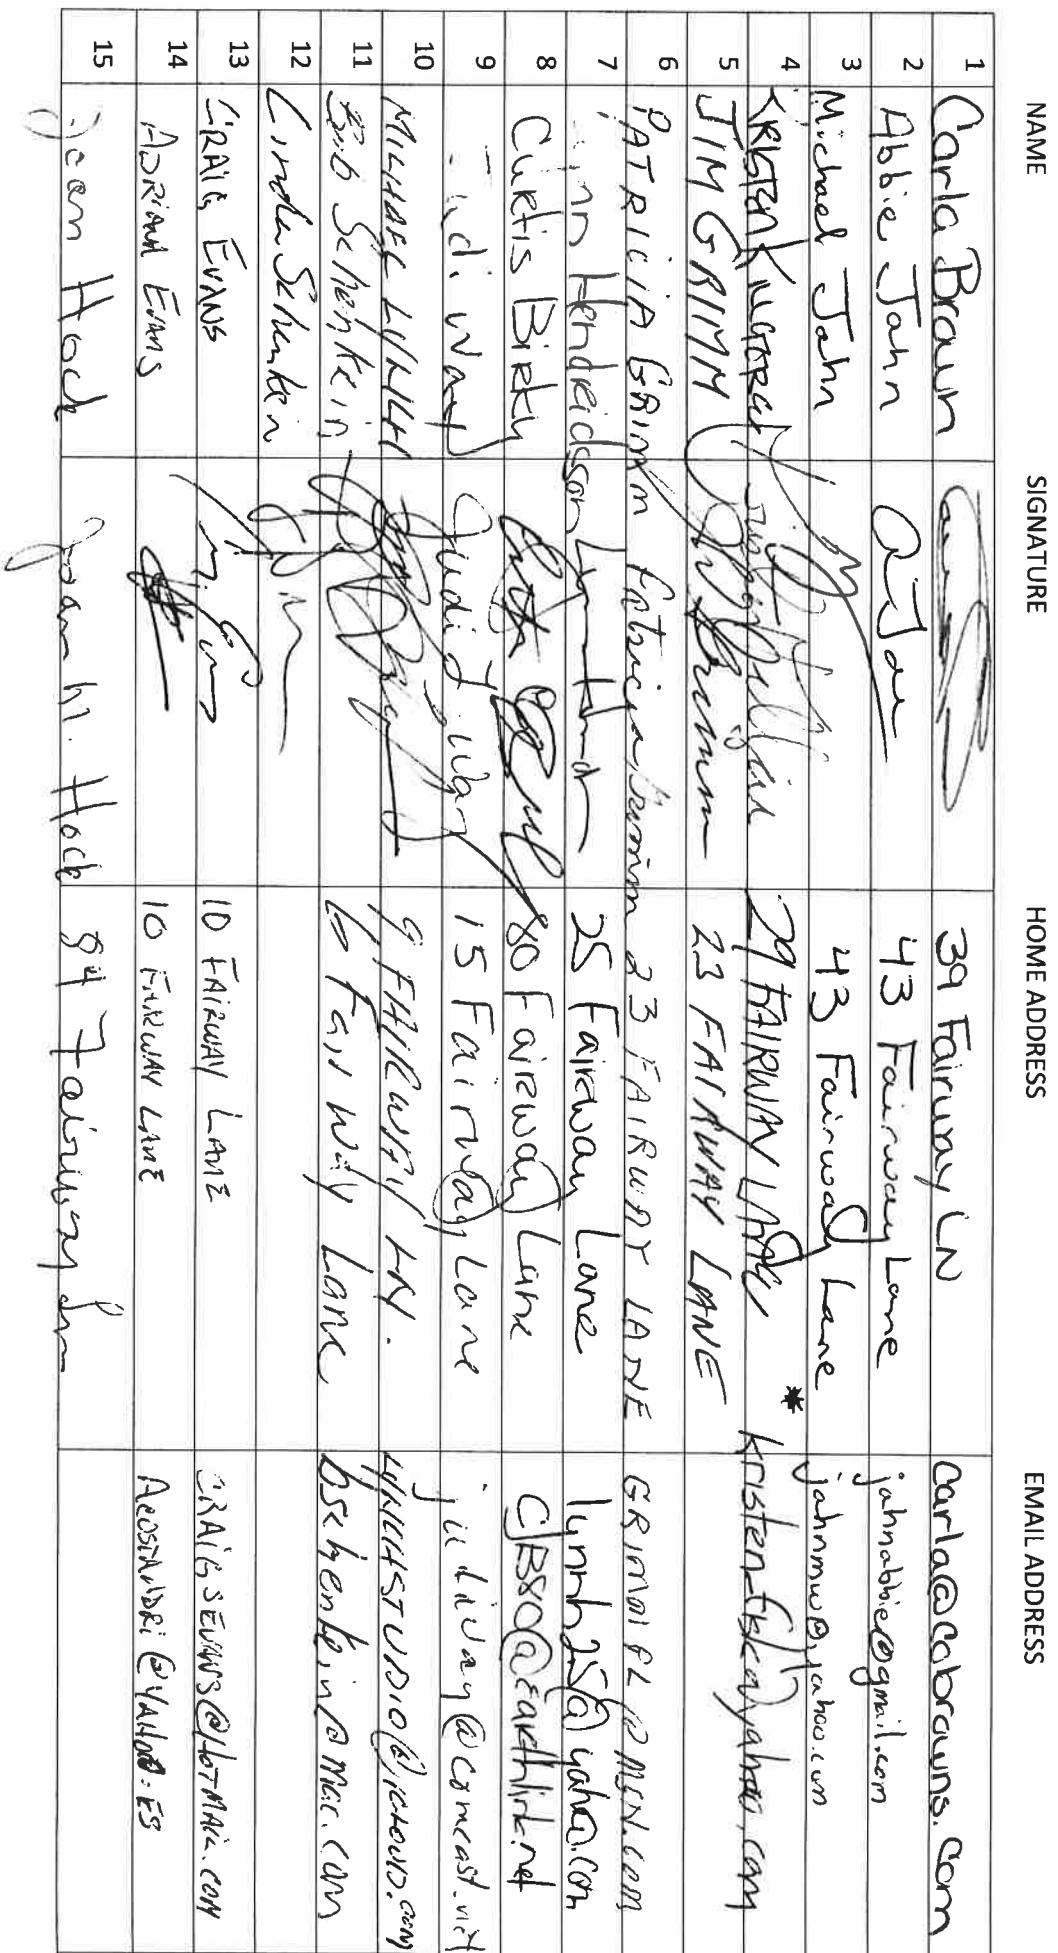 NAME SIGNATURE HOME ADDRESS EMAIL ADDRESS
1 Carla Brown 39 Fairway LN carla@cobrowns.com
2 Abbie Jahn 43 Fairway Lane jahnabbie@gmail.com
3 Michael Jahn 43 Fairway Lane jahnmw@yahoo.com
4 KRISTEN 29 FAIRWAY LANE *
5 JIM GRIMM Jim Grimm 23 FAIRWAY LANE
6 PATRICIA GRIMM Patricia Grimm 23 FAIRWAY LANE GRIMMPL@MSN.COM
7 Hendrickson 25 Fairway Lane lynnh25@yahoo.com
8 Curtis Birky 80 Fairway Lane CJB80@earthlink.net
9 Way Judi J. Way 15 Fairway Lane judiway@comcast.net
10 MICHAEL LYNCH 9 FAIRWAY LN. LYNCHSTUDIO@ICLOUD.COM
11 Bob Schenkein 6 Fairway Lane bschenkein@mac.com
12 Linda Schenkein
13 CRAIG EVANS 10 FAIRWAY LANE CRAIGSEVANS@HOTMAIL.COM
14 ADRIANA EVANS 10 FAIRWAY LANE ACOSTANDRI@YAHOO.ES
15 Joan Hock Joan M. Hock 84 Fairway Ln